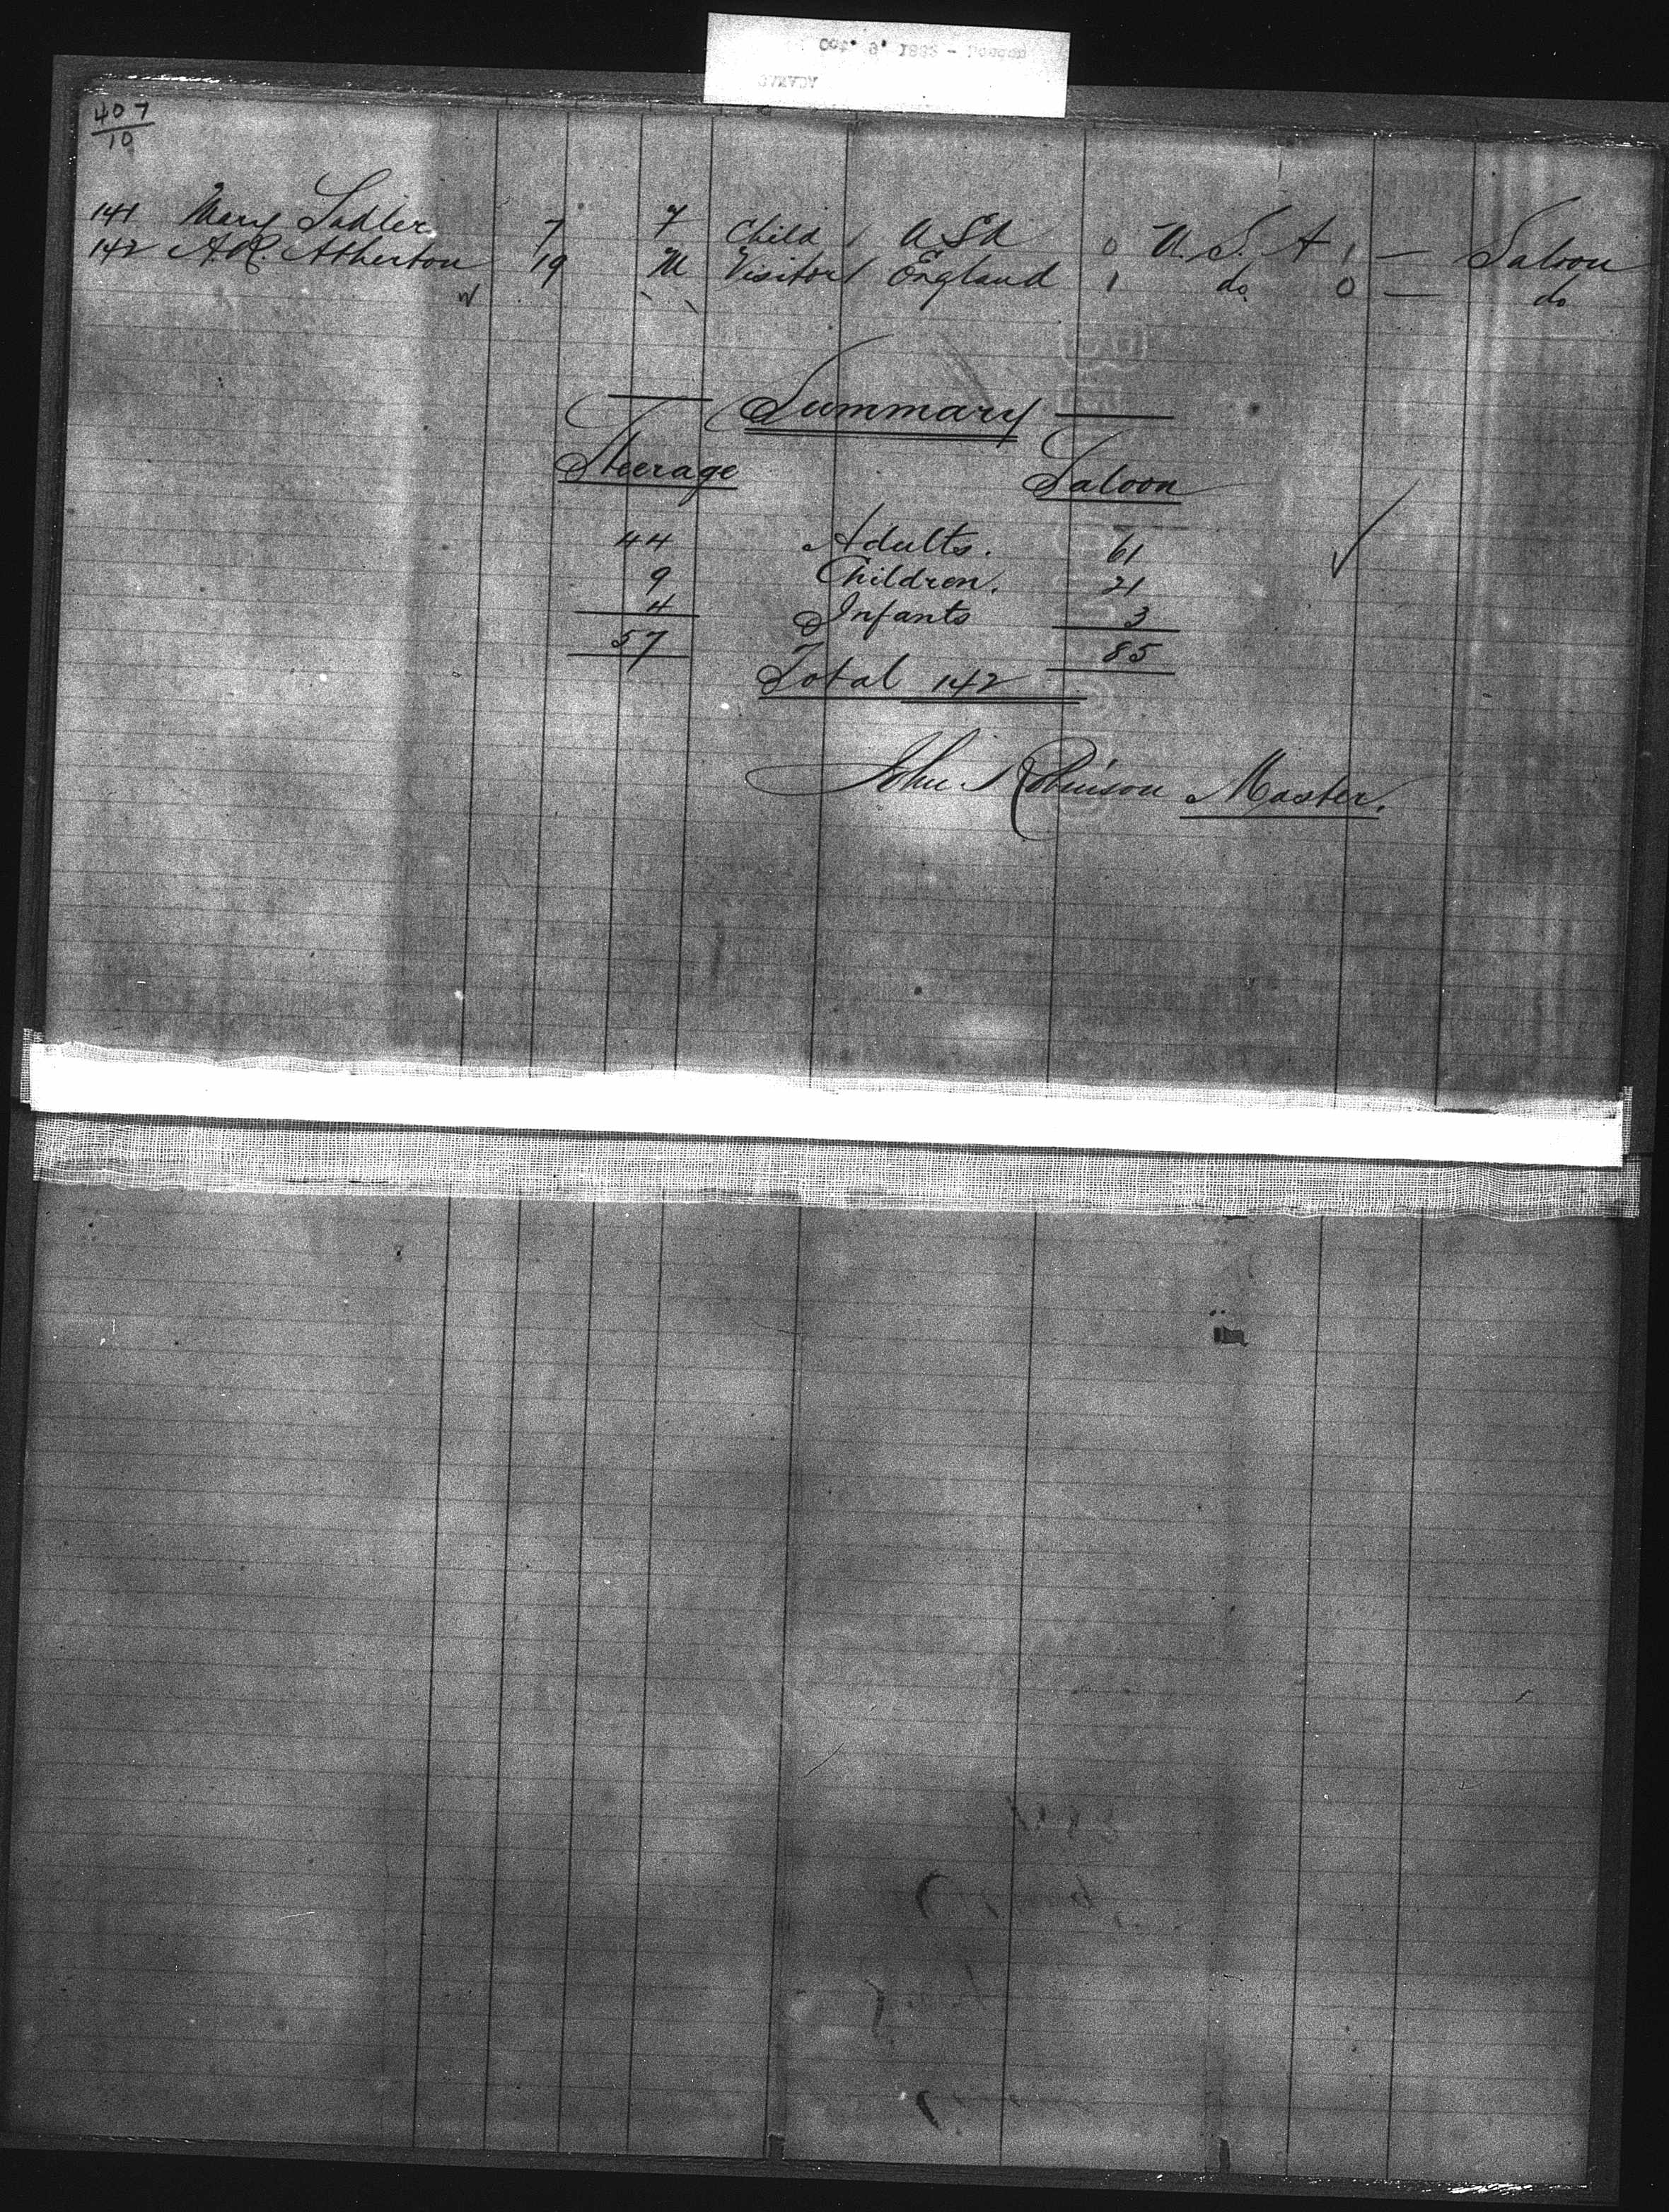 407
10
141 Mary Sadler 7 F Child / USA 0 U.S.A 1 — Saloon
142 A.R. Atherton 19 M Visitor / England 1 do 0 — do
Summary
Steerage Saloon
44 Adults. 61
9 Children. 21
4 Infants 3
57 85
Total 142
John Robinson Master.